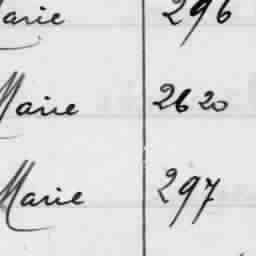 Marie 296
Marie 2620
Marie 297